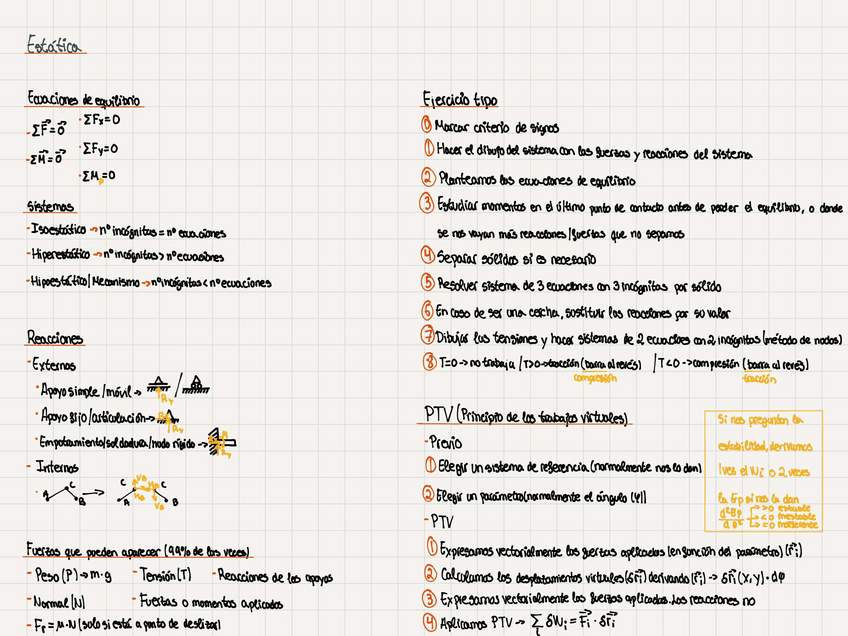 Estática
Ecuaciones de equilibrio
- ΣF⃗=0⃗
· ΣFx=0
- ΣM⃗=0⃗
· ΣFy=0
· ΣMp=0
Sistemas
- Isoestático → nº incógnitas = nº ecuaciones
- Hiperestático → nº incógnitas > nº ecuaciones
- Hipoestático/Mecanismo → nº incógnitas < nº ecuaciones
Reacciones
- Externas
· Apoyo simple/móvil →
/
Ry
· Apoyo fijo/articulación →
Ry
· Empotramiento/soldadura/nodo rígido →
- Internas
A C B → A C C B
Fuerzas que pueden aparecer (99% de las veces)
- Peso (P) → m·g
- Tensión (T)
- Reacciones de los apoyos
- Normal (N)
- Fuerzas o momentos aplicados
- Fr = μ·N (solo si está a punto de deslizar)
Ejercicio tipo
0 Marcar criterio de signos
1 Hacer el dibujo del sistema con las fuerzas y reacciones del sistema
2 Planteamos las ecuaciones de equilibrio
3 Estudiar momentos en el último punto de contacto antes de perder el equilibrio, o donde
se nos vayan más reacciones/fuerzas que no sepamos
4 Separar sólidos si es necesario
5 Resolver sistema de 3 ecuaciones con 3 incógnitas por sólido
6 En caso de ser una cercha, sustituir las reacciones por su valor
7 Dibujar las tensiones y hacer sistemas de 2 ecuaciones con 2 incógnitas (método de nodos)
8 T=0 → no trabaja / T>0 → tracción (barra al revés) / T<0 → compresión (barra al revés)
compresión
tracción
PTV (Principio de los trabajos virtuales)
- Previo
1 Elegir un sistema de referencia (normalmente nos lo dan)
2 Elegir un parámetro (normalmente el ángulo (φ))
- PTV
1 Expresamos vectorialmente las fuerzas aplicadas (en función del parámetro) (r⃗i)
2 Calculamos los desplazamientos virtuales (δr⃗i) derivando (r⃗i) → δr⃗i (x,y)·dφ
3 Expresamos vectorialmente las fuerzas aplicadas. Las reacciones no
4 Aplicamos PTV → Σ δWi = F⃗i · δr⃗i
Si nos preguntan la
estabilidad, derivamos
1 vez el Wi o 2 veces
la Ep si nos la dan
d²Ep
dθ²
>0 estable
<0 inestable
=0 indiferente